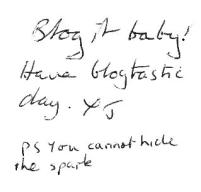 Blog it baby!
Have blogtastic
day. x J
PS You cannot hide
the spark